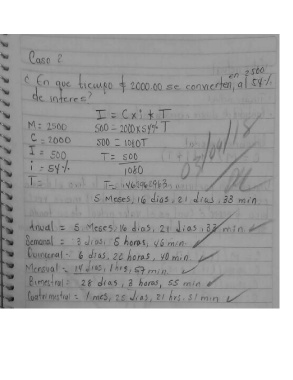 Caso 2
¿ En que tiempo $ 2000.00 se convierten, en 2500 al 54%
de interes?
I = C x i * T
M = 2500 500 = 2000 x 54% T
C = 2000 500 = 1080T
I = 500 T = 500
i = 54% 1080
T =
5 Meses, 16 dias, 21 dias, 33 min
Anual = 5 Meses, 16 dias, 21 dias, 33 min
Semanal = 3 dias, 5 horas, 46 min
Quincenal = 6 dias, 22 horas, 40 min
Mensual = 14 dias, 1 hrs, 57 min
Bimestral = 28 dias, 3 horas, 55 min
Cuatrimestral = 1 mes, 25 dias,